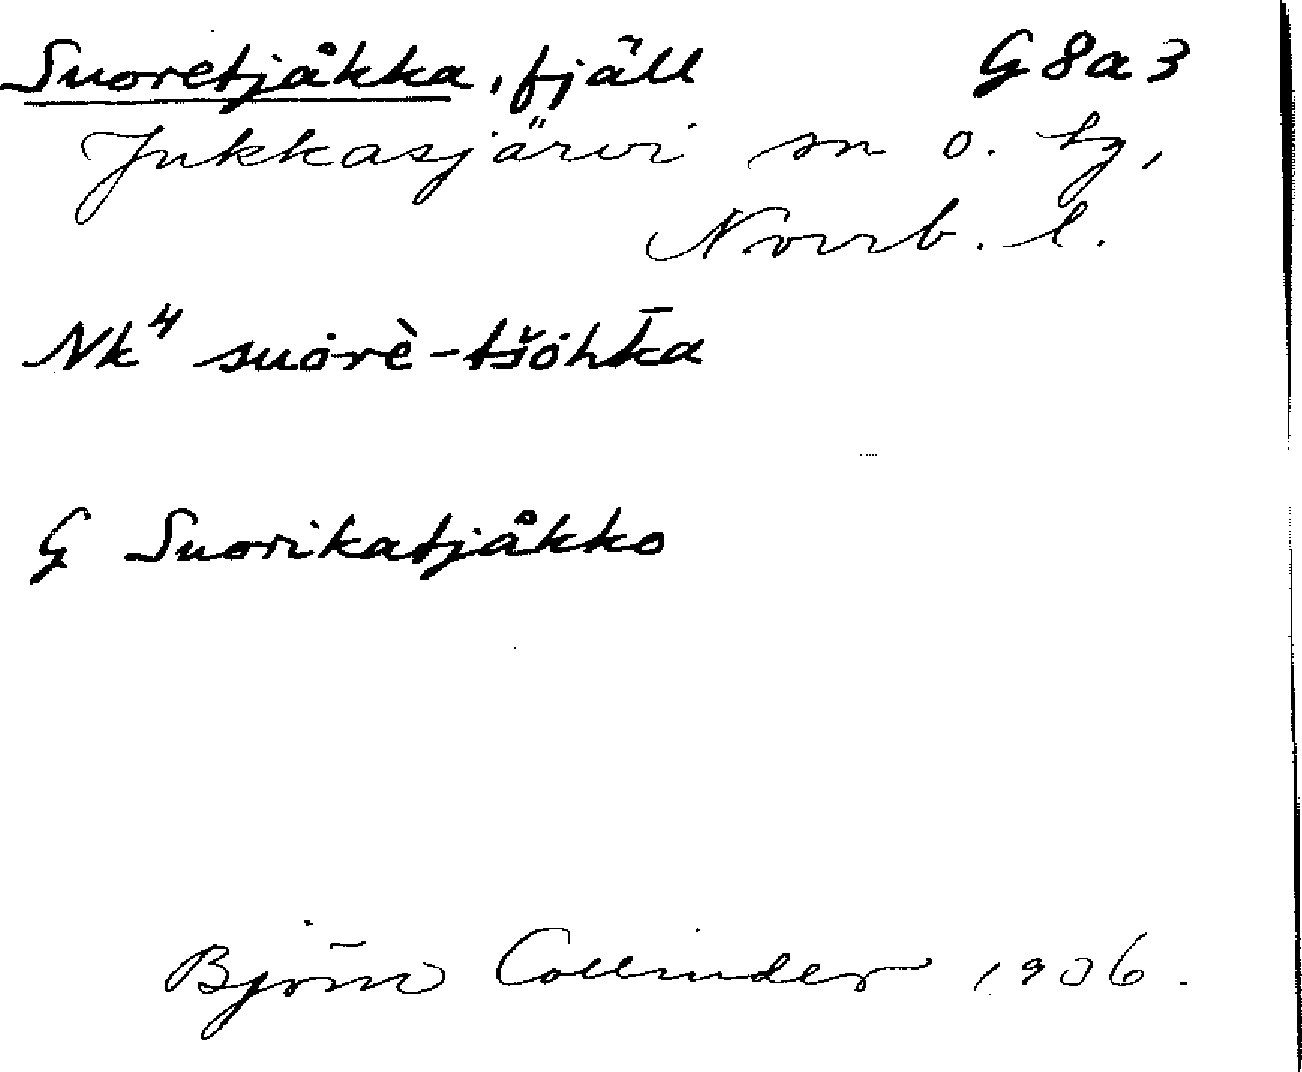 Suoretjåkka, fjäll G 8 a 3
Jukkasjärvi sn o. tg,
Norrb. l.
Nk⁴ suȯrè-tšȯhk̄a
G Suorikatjåkko
Björn Collinder 1936.